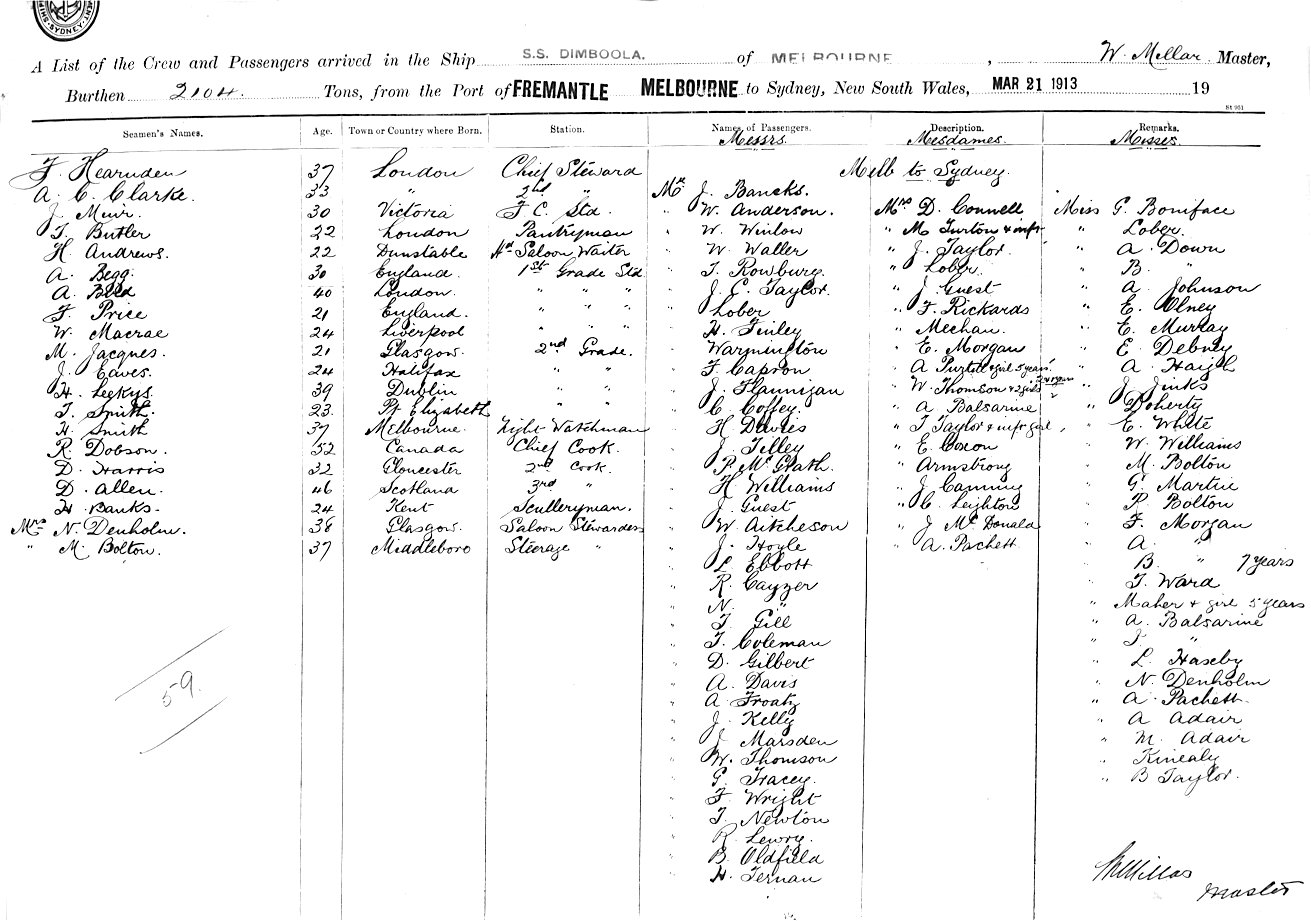 SYDNEY
A List of the Crew and Passengers arrived in the Ship S.S. DIMBOOLA. of MELBOURNE, W. Millar Master,
Burthen 2104. Tons, from the Port of FREMANTLE MELBOURNE to Sydney, New South Wales, MAR 21 1913 19
St 951
Seamen's Names. Age. Town or Country where Born. Station. Names of Passengers. Description. Remarks.
Messrs Mesdames. Misses.
F. Hearnden 37 London Chief Steward Melb to Sydney.
A. C. Clarke. 33 " 2nd " Mr J. Bancks.
J. Muir. 30 Victoria F C. Std. " W. Anderson. Mrs D. Connell Miss G. Boniface
T. Butler 22 London Pantryman " W. Winlow " M Turton & inft " Lober.
H. Andrews. 22 Dunstable Hd Saloon Waiter " W. Waller " J. Taylor. " A. Down
A. Begg. 30 England. 1st Grade Std " T. Rowburg. " Lober. " B. "
A. 40 London. " " " " J. C. Taylor. " J. Guest " A. Johnson
F. Price 21 England. " " " " Lober " F. Rickards " E. Olney
W. Macrae 24 Liverpool " " " " H. Finley " Mechan. " E. Murray
M. Jacques. 21 Glasgow. 2nd Grade. " Warmington " E. Morgan " E Debney
J. Eaves. 24 Halifax " " " F. Capron " A Purtell & girl 5 years. " A Haigh
H. Leekys. 39 Dublin " " " J. Flannigan " W. Thomson & 2 girls " J. Jinks
T. Smith. 23. Pt Elizabeth " " " C. Coffey. " A Balsarine " Doherty
H. Smith 37 Melbourne. Night Watchman " H Davies " T Taylor & inft girl, " E. White
R. Dobson. 52 Canada Chief Cook. " J. Tilley " E. Coxon " W. Williams
D. Harris 32 Gloucester 2nd Cook. " P. McGrath. " Armstrong " M. Bolton
D. Allen. 46 Scotland 3rd " " H Williams " J Canning " G. Martin
H. Banks. 24 Kent Sculleryman. " J. Guest " C. Leighton " R. Bolton
Mrs N. Denholm. 38 Glasgow. Saloon Stewardess " W. Aitcheson " J McDonald " F. Morgan
" M. Bolton. 37 Middleboro Steerage " " J. Hoyle " A. Pachett " A. "
" L. Ebbott " B. " 7 years
" R. Cayzer " T. Ward
" N. " " Maher & girl 5 years
" T. Gill " A. Balsarine
" T. Coleman " J. "
" D. Gilbert " L. Haseby
59. " A. Davis " N. Denholm
" A. Froatz " A. Pachett.
" J. Kelly " A Adair
" J. Marsden " M. Adair
" W. Thomson " Kinealy
" G. Tracey. " B Taylor.
" F. Wright
" T. Newton
" R. Lewry.
" B. Oldfield
" H. Ternan
W Millar
Master